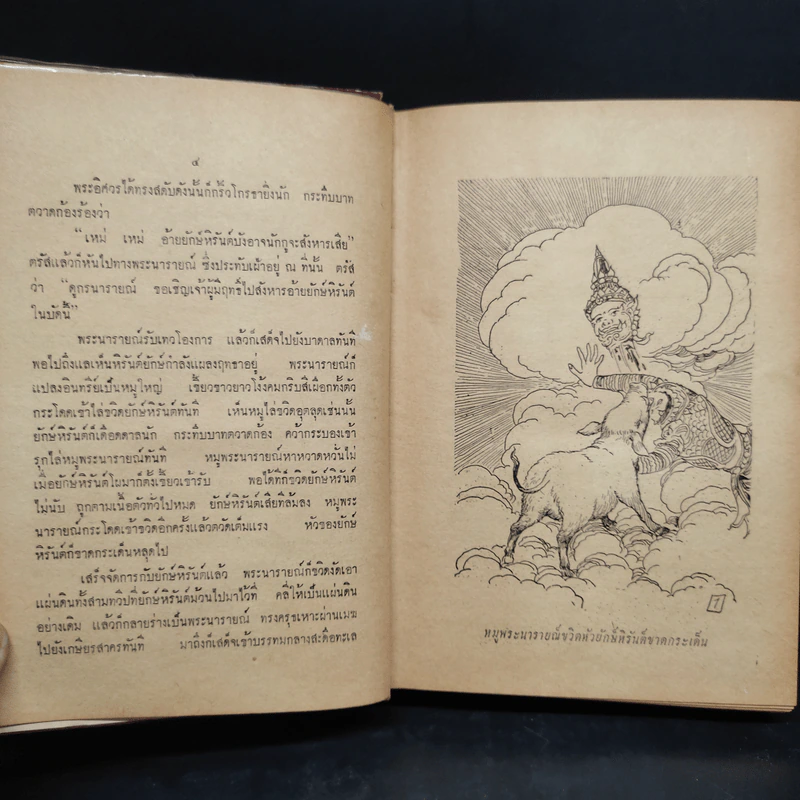 ๔
พระอิศวรได้ทรงสดับดังนั้นก็กริ้วโกรธายิ่งนัก กระทืบบาท
ตวาดก้องร้องว่า
“เหม่ เหม่ อ้ายยักษ์หิรันต์บังอาจนักกูจะสังหารเสีย”
ตรัสแล้วก็หันไปทางพระนารายณ์ ซึ่งประทับเฝ้าอยู่ ณ ที่นั้น ตรัส
ว่า “ดูกรนารายณ์ ขอเชิญเจ้าผู้มีฤทธิ์ไปสังหารอ้ายยักษ์หิรันต์
ในบัดนี้”
พระนารายณ์รับเทวโองการ แล้วก็เสด็จไปยังบาดาลทันที
พอไปถึงแลเห็นหิรันต์ยักษ์กำลังแผลงฤทธาอยู่ พระนารายณ์ก็
แปลงอินทรีย์เป็นหมูใหญ่ เขี้ยวขาวยาวโง้งคมกริบสีเผือกทั้งตัว
กระโดดเข้าไล่ขวิดยักษ์หิรันต์ทันที เห็นหมูไล่ขวิดอุตลุดเช่นนั้น
ยักษ์หิรันต์ก็เดือดดาลนัก กระทืบบาทตวาดก้อง คว้ากระบองเข้า
รุกไล่หมูพระนารายณ์ทันที หมูพระนารายณ์หาหวาดหวั่นไม่
เมื่อยักษ์หิรันต์โผมาก็ตั้งเขี้ยวเข้ารับ พอได้ทีก็ขวิดยักษ์หิรันต์
ไม่นับ ถูกตามเนื้อตัวทั่วไปหมด ยักษ์หิรันต์เสียทีล้มลง หมูพระ
นารายณ์กระโดดเข้าขวิดอีกครั้งแล้วตวัดเต็มแรง หัวของยักษ์
หิรันต์ก็ขาดกระเด็นหลุดไป
เสร็จจัดการกับยักษ์หิรันต์แล้ว พระนารายณ์ก็ขวิดงัดเอา
แผ่นดินทั้งสามทวีปที่ยักษ์หิรันต์ม้วนไปมาไว้ที่ คลี่ให้เป็นแผ่นดิน
อย่างเดิม แล้วก็กลายร่างเป็นพระนารายณ์ ทรงครุฑเหาะผ่านเมฆ
ไปยังเกษียรสาครทันที มาถึงก็เสด็จเข้าบรรทมกลางสะดือทะเล
1
หมูพระนารายณ์ขวิดหัวยักษ์หิรันต์ขาดกระเด็น